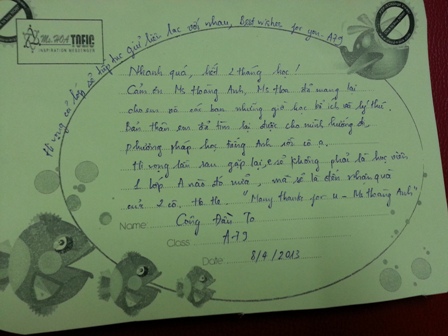 Ms. HOA TOEIC
INSPIRATION MESSENGER
Hi vọng cả lớp sẽ tiếp tục giữ liên lạc với nhau, best wishes for you. A79
Nhanh quá, hết 2 tháng học!
Cảm ơn Ms Hoàng Anh, Ms Hoa đã mang lại
cho em và các bạn những giờ học bổ ích và lý thú.
Bản thân em đã tìm lại được cho mình hướng đi,
phương pháp học tiếng Anh rồi cô ạ.
Hi vọng lần sau gặp lại, e sẽ không phải là học viên
1 lớp A nào đó nữa, mà sẽ là
của 2 cô. He He. "Many thanks for u - Ms Hoàng Anh"
Name: Công Đầu To
Class: A79
Date: 8/4/2013